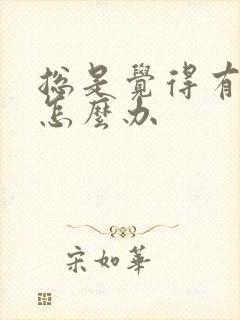 總是覺得有
怎麼办
宋如華